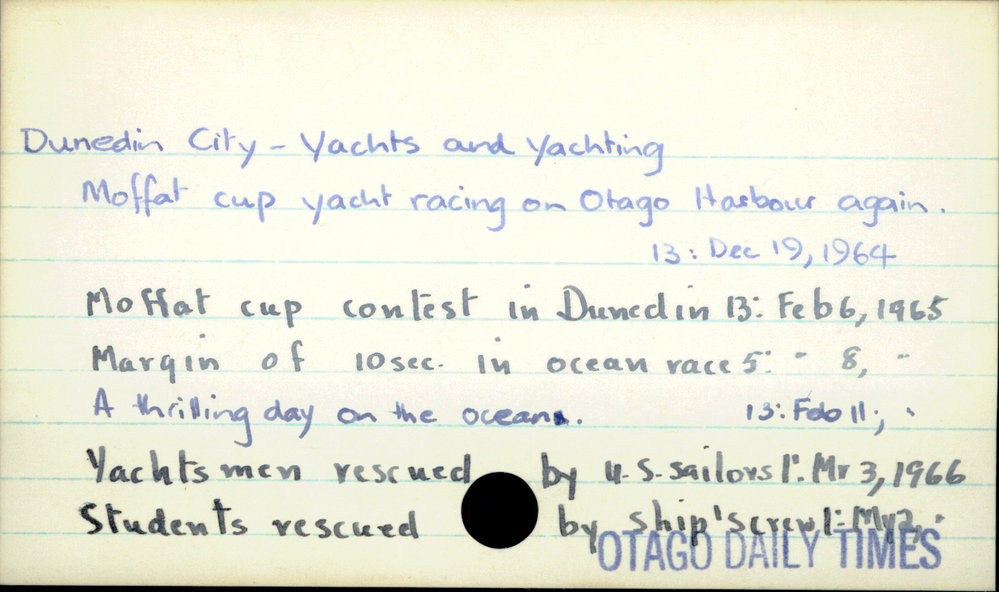 Dunedin City - Yachts and Yachting
Moffat cup yacht racing on Otago Harbour again.
13: Dec 19, 1964
Moffat cup contest in Dunedin 13: Feb 6, 1965
Margin of 10 sec. in ocean race 5: " 8, "
A thrilling day on the ocean. 13: Feb 11, "
Yachtsmen rescued by U.S. sailors 1: Mr 3, 1966
Students rescued by ship's crew 1: My 2, "
OTAGO DAILY TIMES